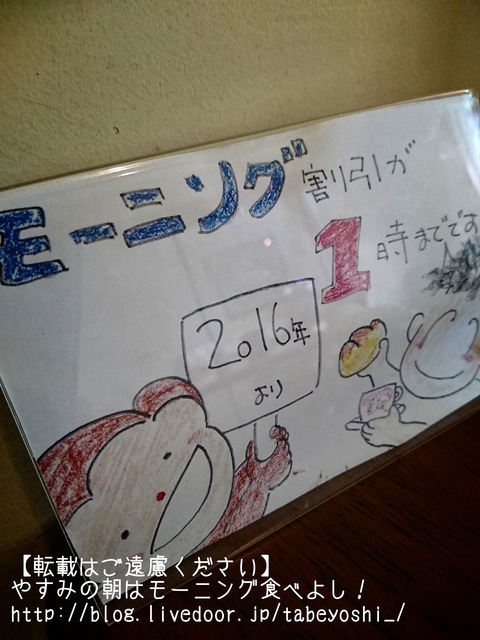 モーニング割引が
1時までです
2016年
より
【転載はご遠慮ください】
やすみの朝はモーニング食べよし！
http://blog.livedoor.jp/tabeyoshi_/